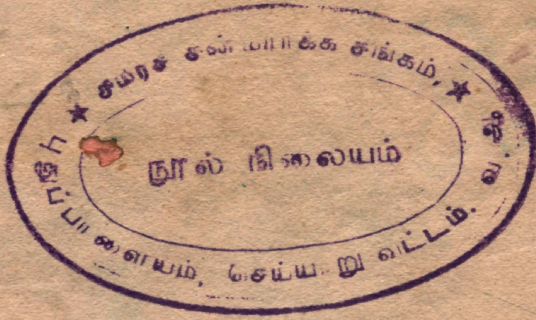 ★ சமரச சன்மார்க்க சங்கம், ★
நூல் நிலையம்
செய்யாறு வட்டம். வ. ஆ